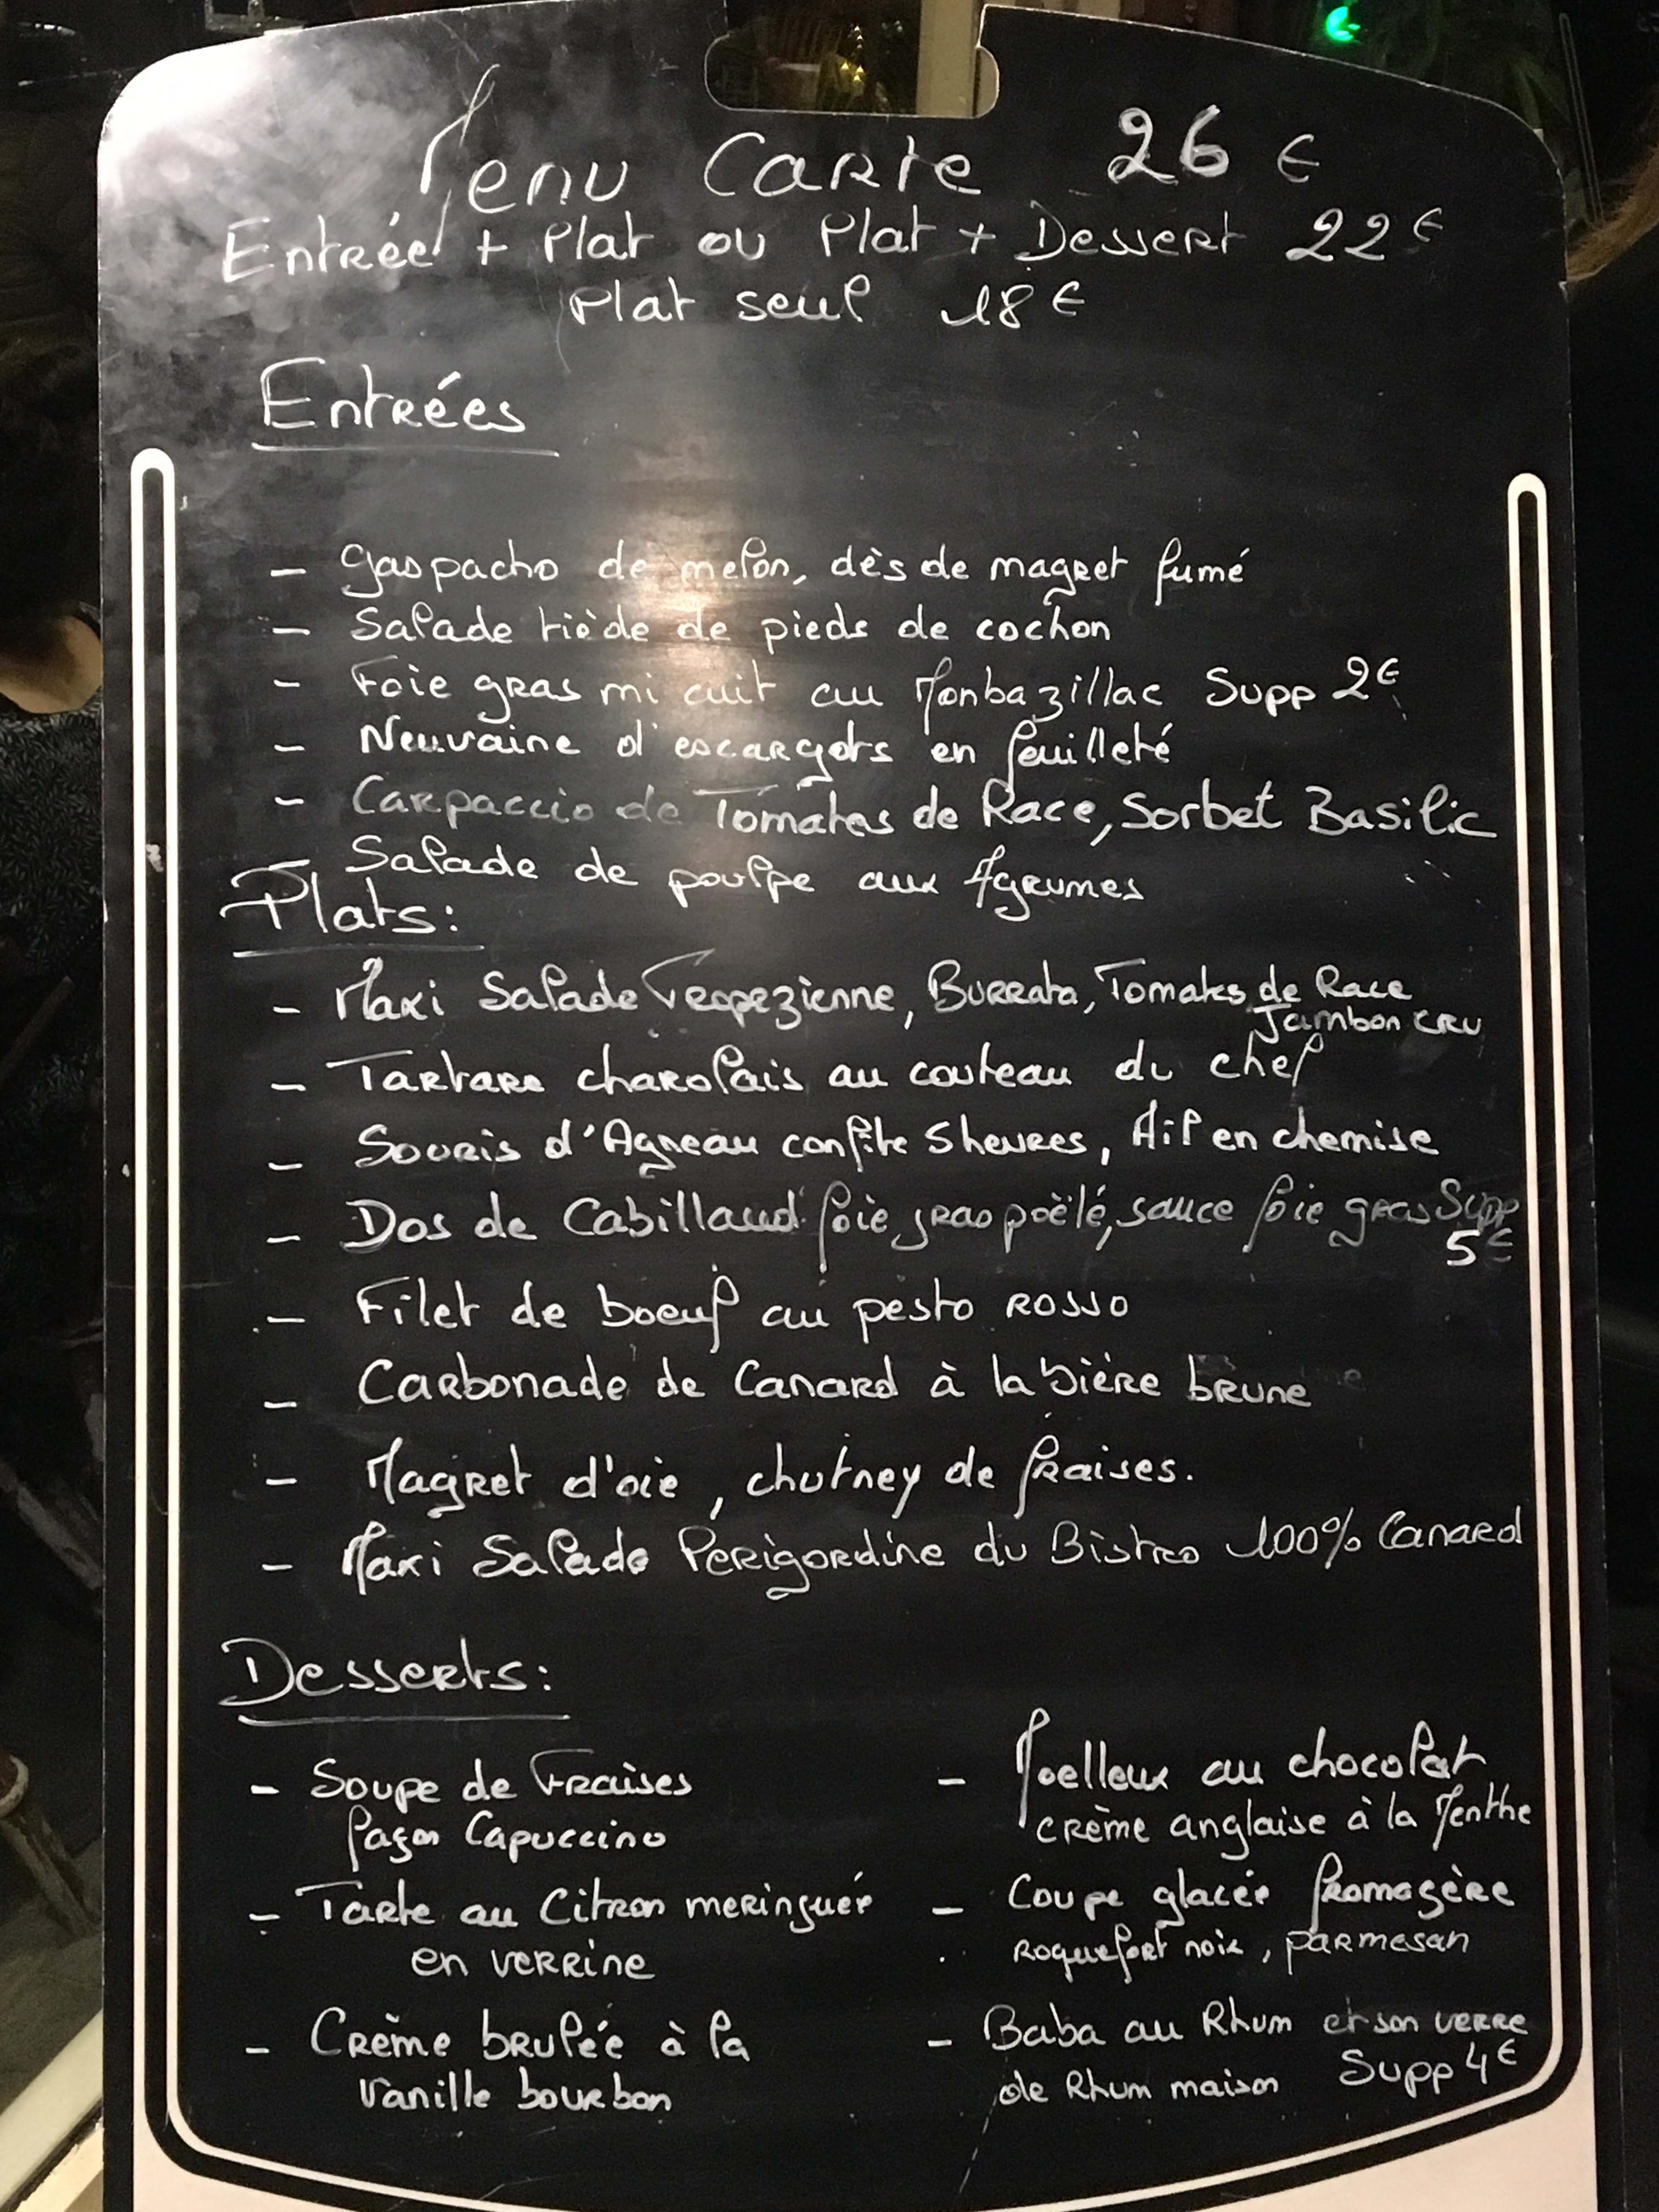 Menu Carte 26 €
Entrée + Plat ou Plat + Dessert 22 €
Plat seul 18 €
Entrées
- Gaspacho de melon, dès de magret fumé
- Salade tiède de pieds de cochon
- Foie gras mi cuit au Monbazillac Supp 2€
- Neuvaine d'escargots en feuilleté
- Carpaccio de Tomates de Race, Sorbet Basilic
- Salade de poulpe aux Agrumes
Plats:
- Maxi Salade Tropezienne, Burrata, Tomates de Race
Jambon cru
- Tartare charolais au couteau du chef
- Souris d'Agneau confite 5 heures, Ail en chemise
- Dos de Cabillaud foie gras poëlé, sauce foie gras Supp
5€
- Filet de boeuf au pesto rosso
- Carbonade de Canard à la bière brune
- Magret d'oie, chutney de fraises.
- Maxi Salade Perigordine du Bistro 100% Canard
Desserts:
- Soupe de Fraises
façon Capuccino
- Tarte au Citron meringuée
en verrine
- Crème brulée à la
Vanille bourbon
- Moelleux au chocolat
crème anglaise à la Menthe
- Coupe glacée fromagère
roquefort noix, parmesan
- Baba au Rhum et son verre
de Rhum maison Supp 4€